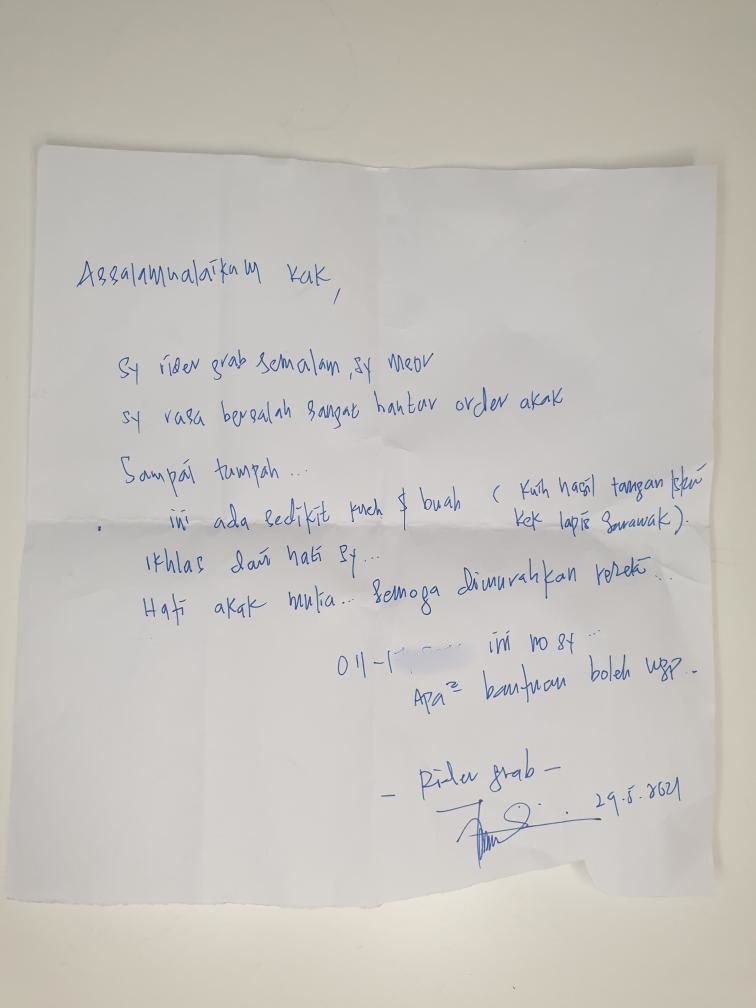 Assalamualaikum kak,
Sy rider grab semalam, sy meor
sy rasa bersalah sangat hantar order akak
Sampai tumpah...
ini ada sedikit kueh & buah ( Kuih hasil tangan
kek lapis Sarawak).
Ikhlas dari hati sy...
Hati akak mulia... semoga dimurahkan rezeki...
011- ini no sy...
Apa² bantuan boleh wsp..
- Rider grab -
29.5.2021